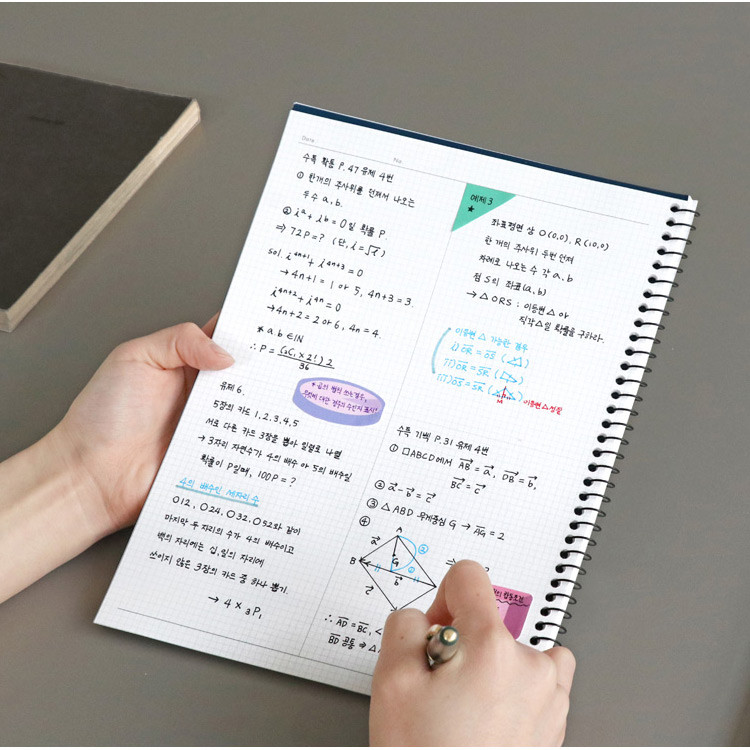 Date.
No.
수특 확통 P.47 유제 4번
① 한개의 주사위를 던져서 나오는
두수 a, b.
② iᵃ + iᵇ = 0일 확률 P.
⇒ 72P = ? (단, i = √-1)
sol. i⁴ⁿ⁺¹ + i⁴ⁿ⁺³ = 0
→ 4n+1 = 1 or 5, 4n+3 = 3.
i⁴ⁿ⁺² + i⁴ⁿ = 0
→ 4n+2 = 2 or 6, 4n = 4.
* a, b ∈ IN
유제 6.
5장의 카드 1, 2, 3, 4, 5
서로 다른 카드 3장을 뽑아 일렬로 나열
→ 3자리 자연수가 4의 배수 or 5의 배수일
확률이 P일때, 100P = ?
4의 배수인 세자리 수
○12, ○24, ○32, ○52와 같이
마지막 두 자리의 수가 4의 배수이고
백의 자리에는 십, 일의 자리에
쓰이지 않은 3장의 카드 중 하나 뽑기.
→ 4 × ₃P₁
예제 3
★
좌표평면 상 O(0,0), R(10,0)
한 개의 주사위 두번 던져
차례로 나오는 수 각 a, b
점 S의 좌표(a, b)
→ △ORS : 이등변△ or
직각△일 확률을 구하라.
이등변 △ 가능한 경우
i) OR = OS
ii) OR = SR
iii) OS = SR
M
이등변△성질
수특 기벡 P.31 유제 4번
① □ABCD에서 AB = a, DB = b,
BC = c
② a - b = c
③ △ABD 무게중심 G → AG = 2
④
A
a
②
B
G
①
b
c
∴ AD = BC, <
BD 공통 ⇒ △